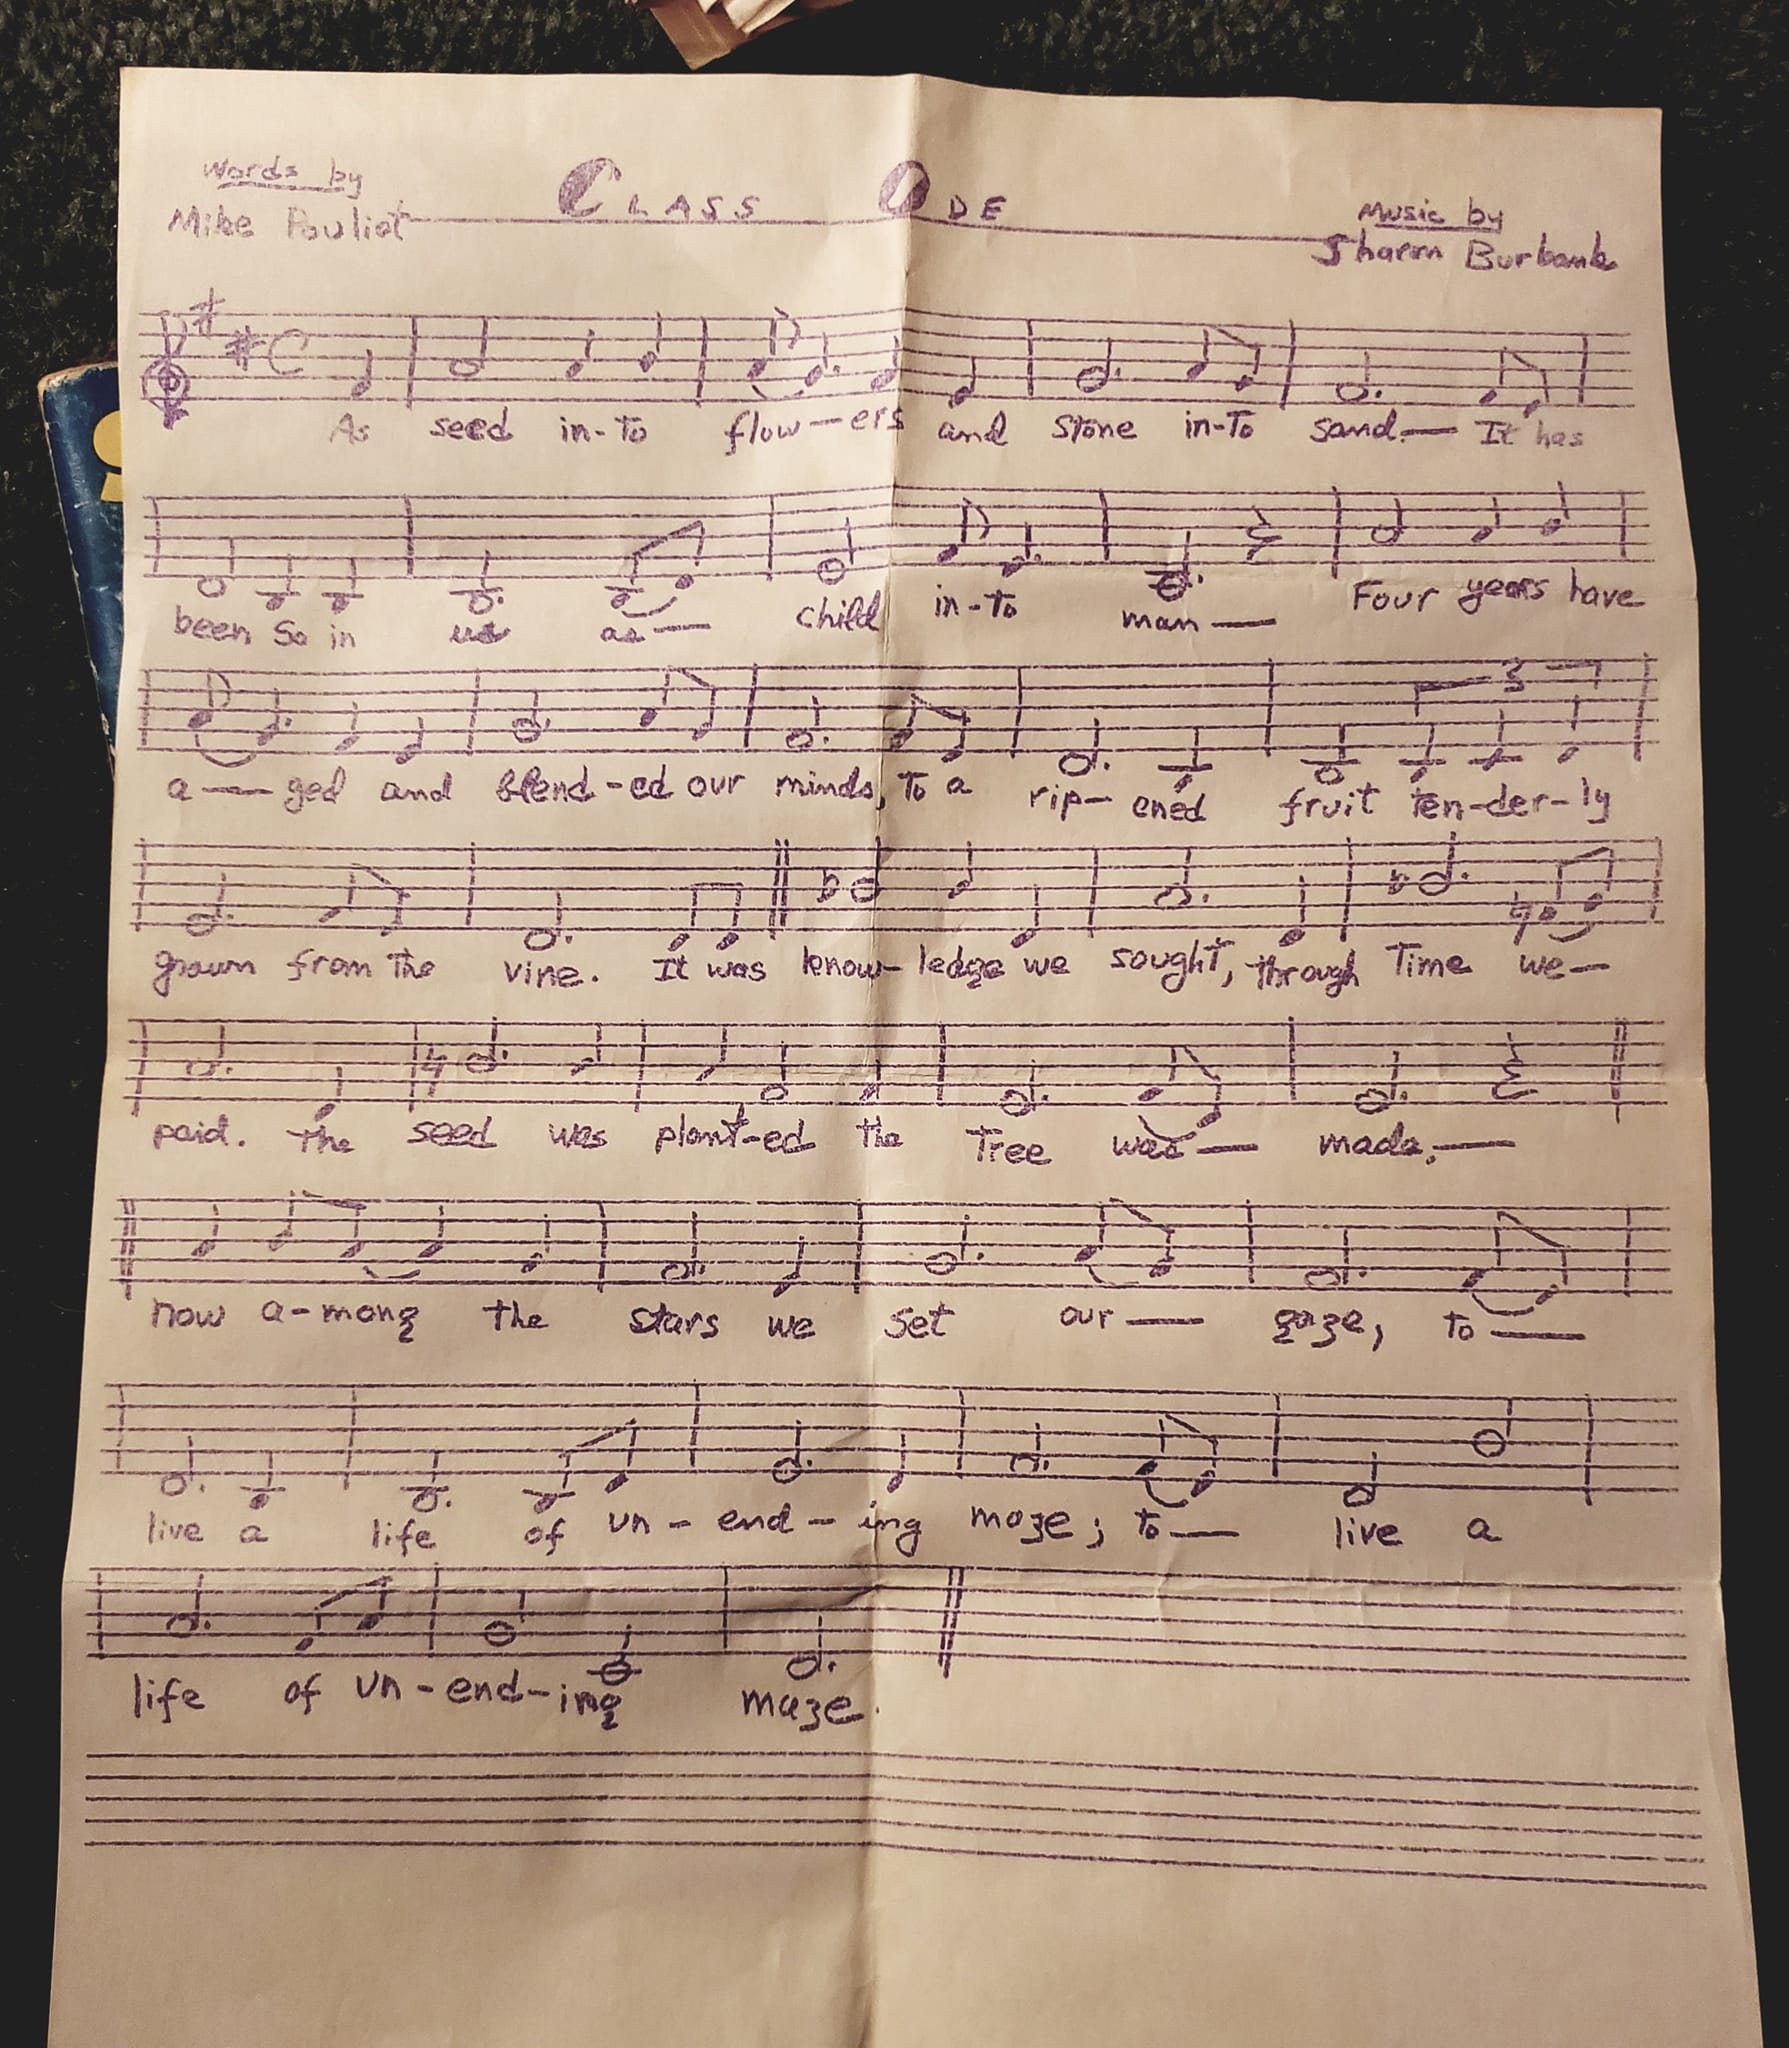 Words by
Mike Pouliot
CLASS ODE
Music by
Sharon Burbank
As seed in-to flow-ers and stone in-to sand.— It has
been so in us as— child in-to man— Four years have
a—ged and blend-ed our minds, to a rip-ened fruit ten-der-ly
3
grown from the vine. It was know-ledge we sought, through Time we—
paid. The seed was plant-ed the Tree was— made.—
now a-mong the stars we set our— gaze, to—
live a life of un-end-ing maze; to— live a
life of un-end-ing maze.